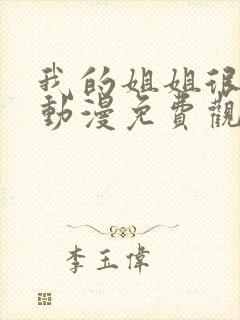 我的姐姐很
動漫免費觀
李玉偉